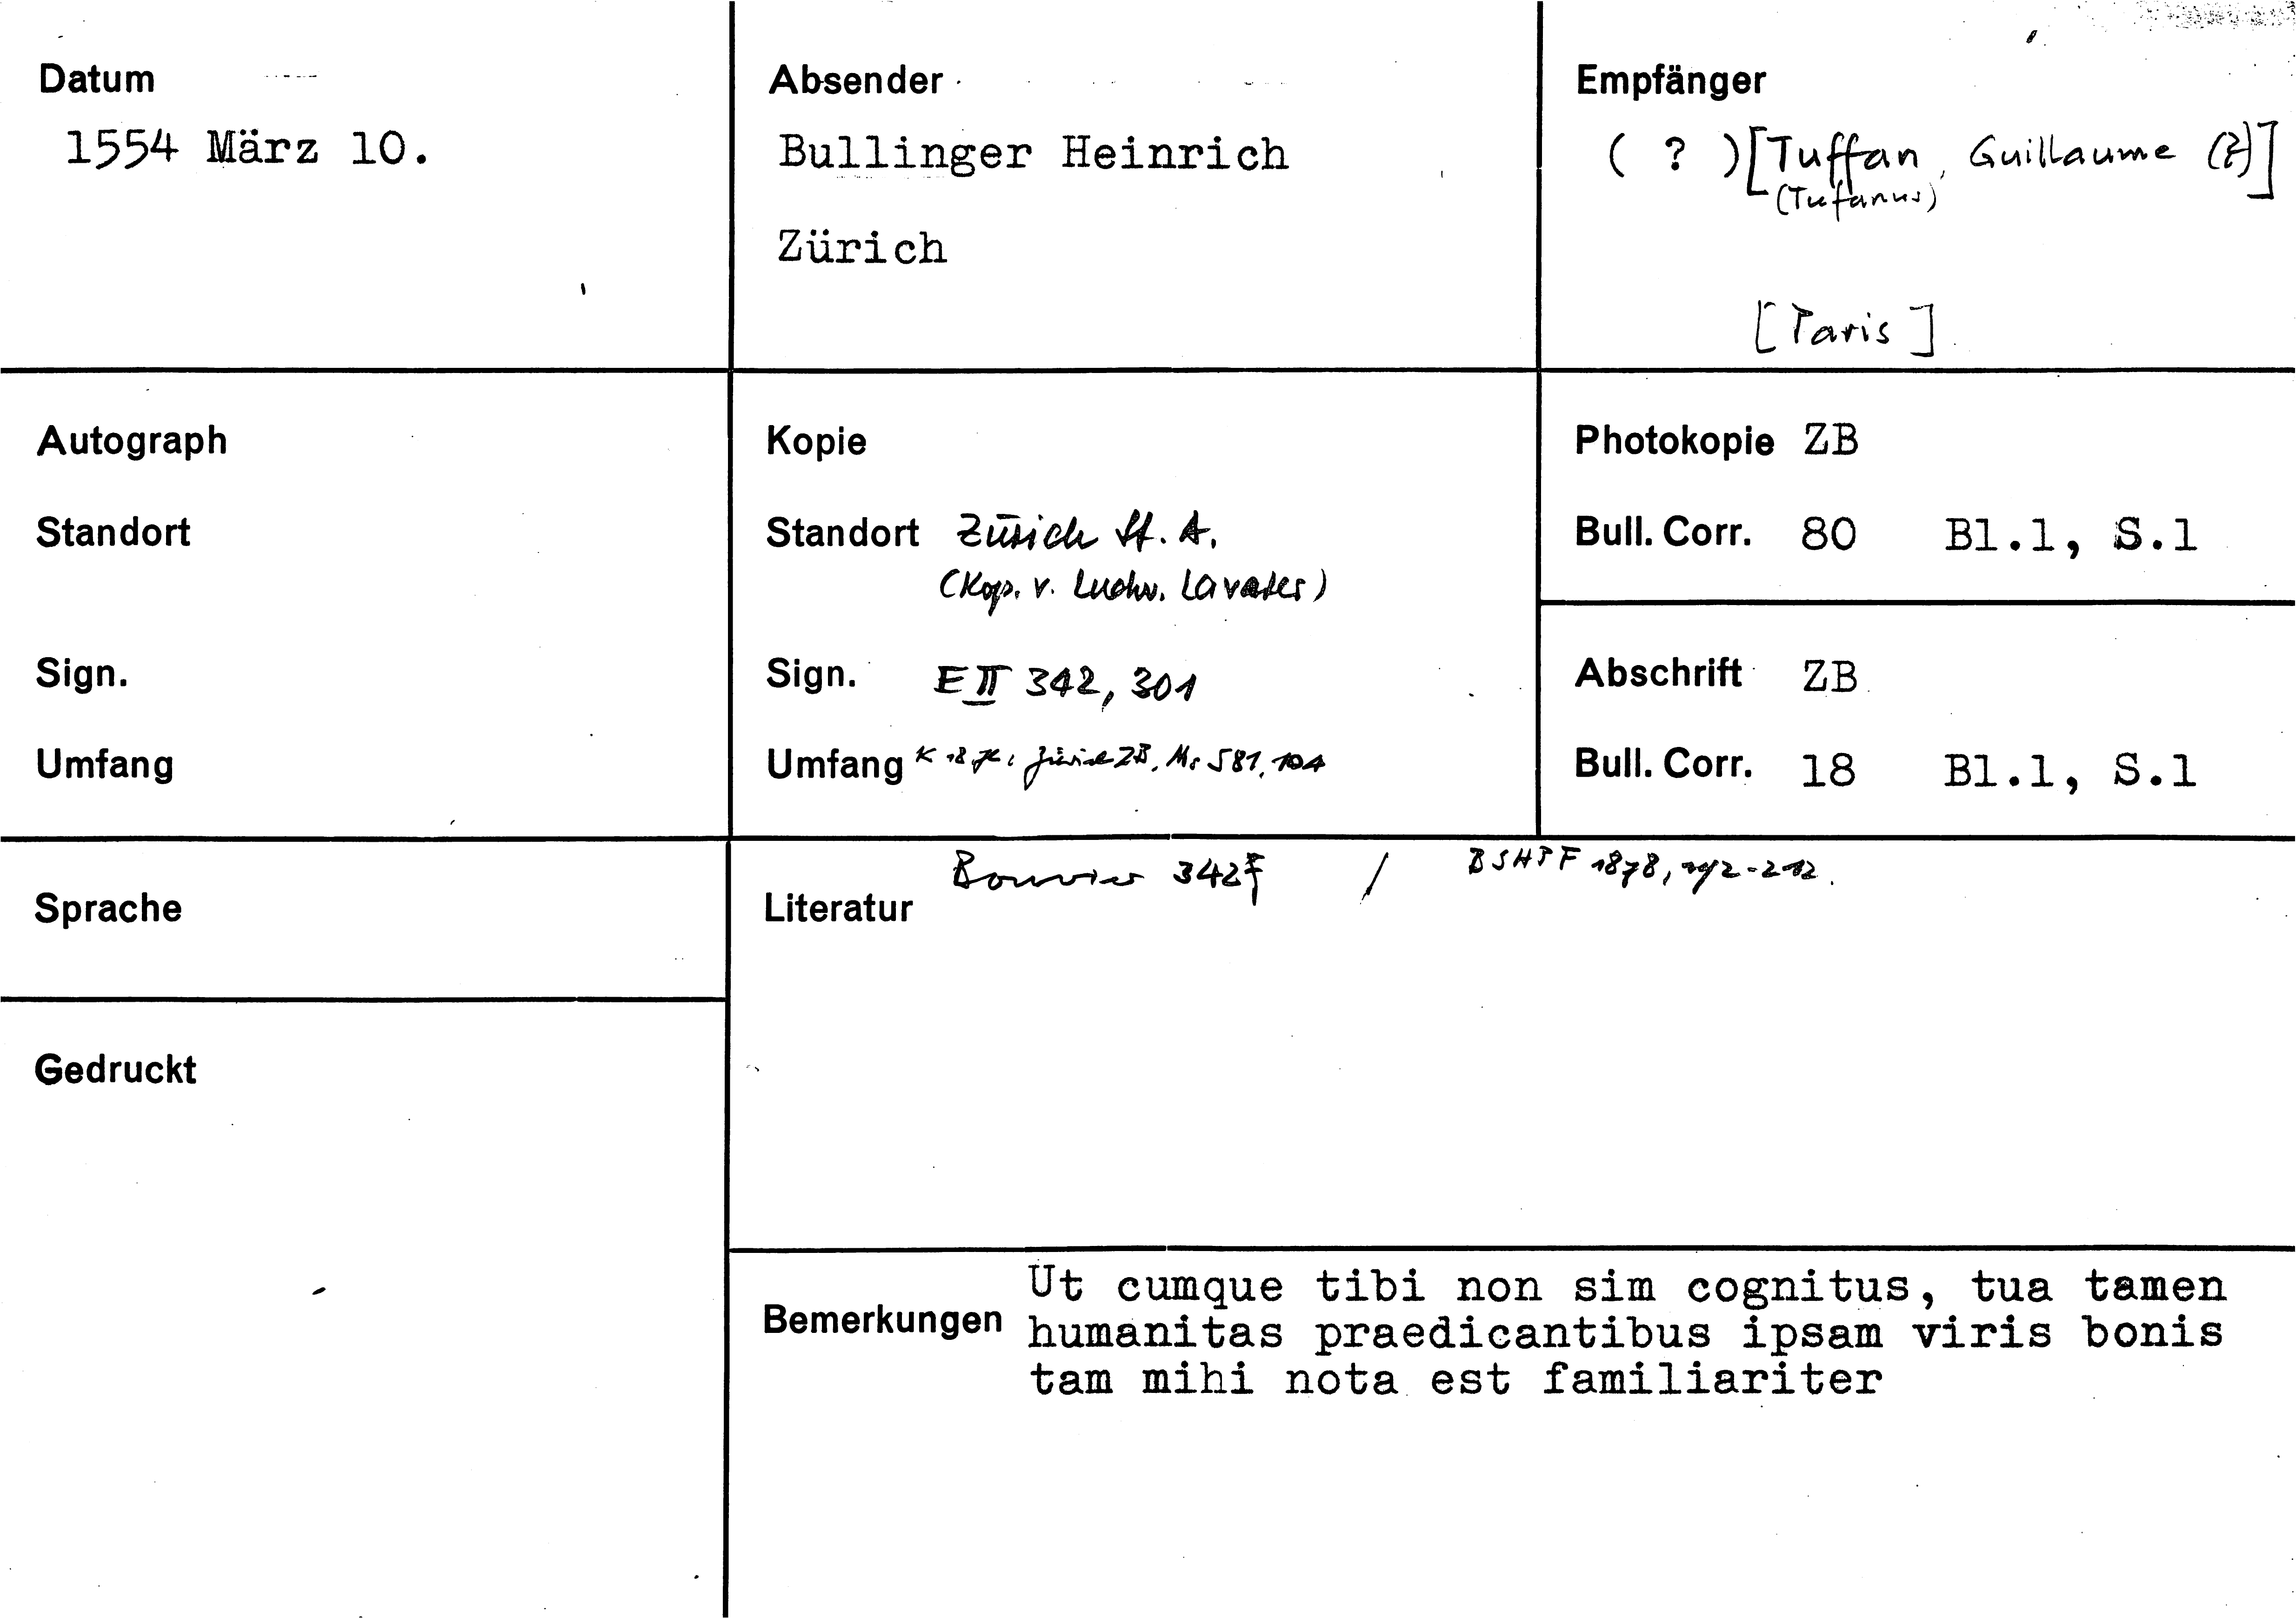 Datum
1554 März 10.
Absender
Bullinger Heinrich
Zürich
Empfänger
( ? ) [Tuffan, Guillaume (?)]
(Tufanus)
[Paris]
Autograph
Standort
Sign.
Umfang
Kopie
Standort Zürich St. A.
(Kop. v. Ludw. Lavater)
Sign. E II 342, 301
Umfang K 18. Jh: Zürich ZB, Ms S 81, 104
Photokopie ZB
Bull. Corr. 80 Bl.1, S.1
Abschrift ZB
Bull. Corr. 18 Bl.1, S.1
Sprache
Gedruckt
Bouvier 342f / BSHPF 1878, -212.
Literatur
Ut cumque tibi non sim cognitus, tua tamen
Bemerkungen humanitas praedicantibus ipsam viris bonis
tam mihi nota est familiariter